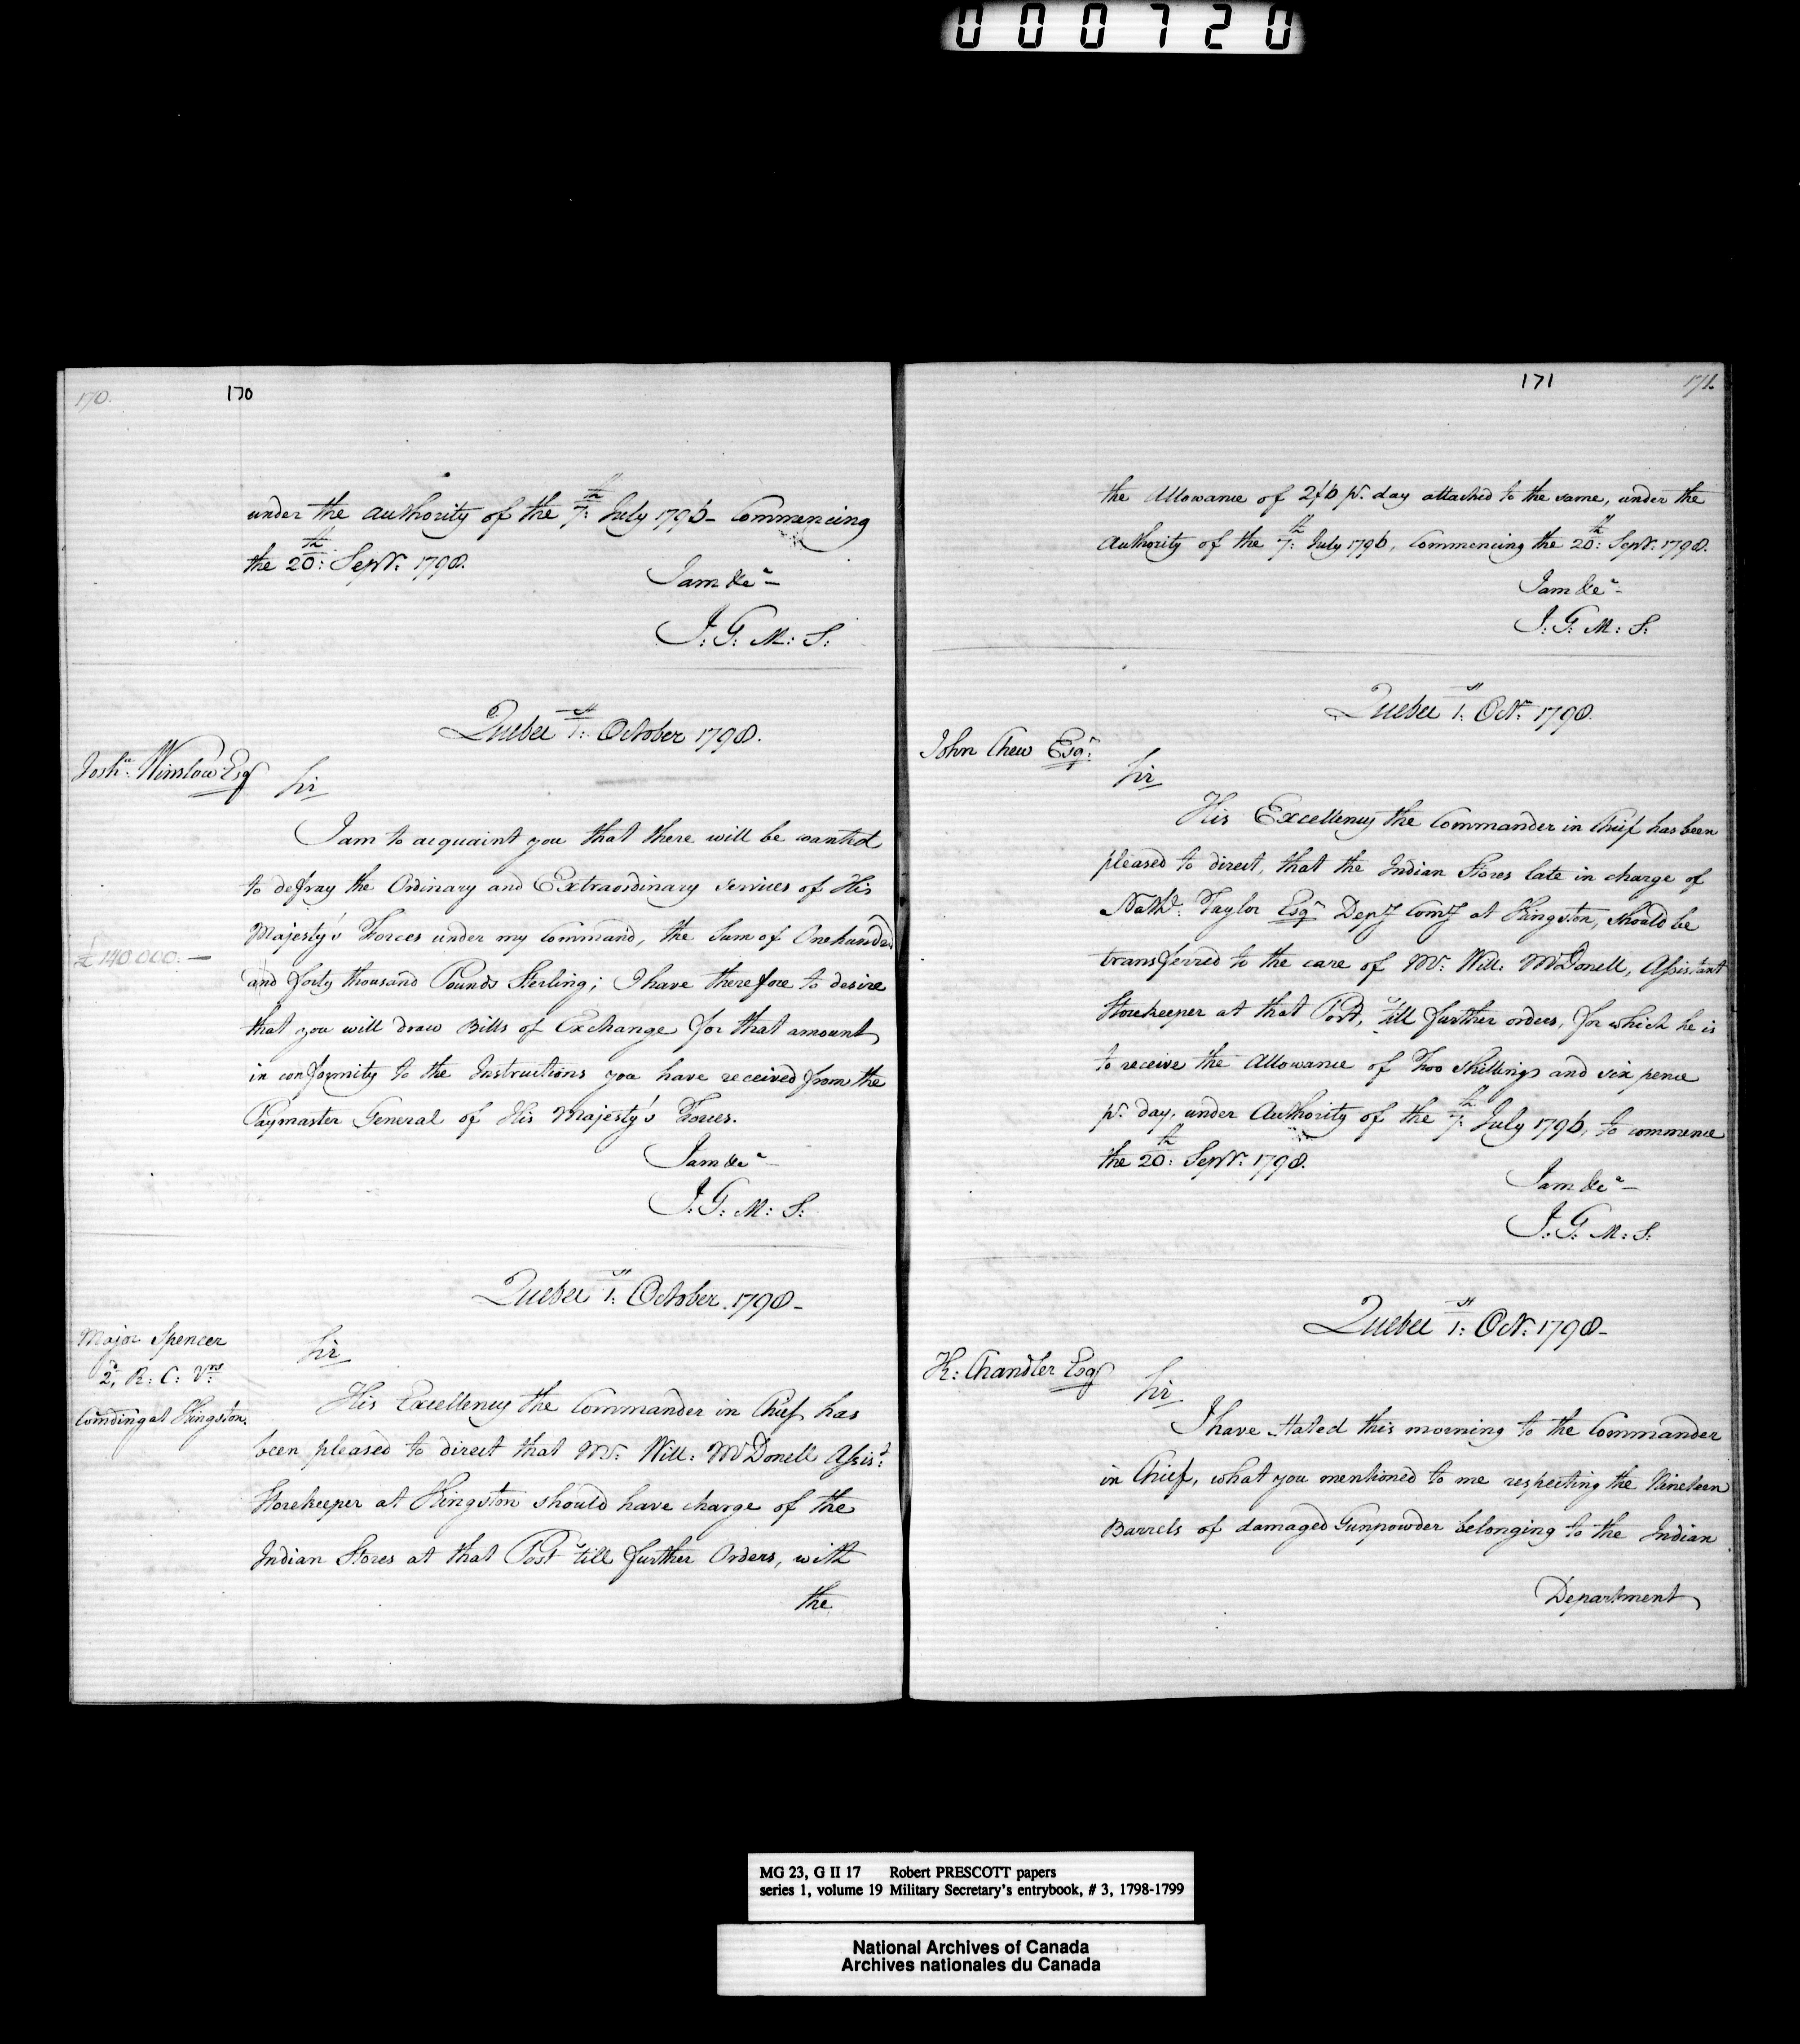 000720
170.
170
under the authority of the 7th: July 1796 - Commencing
the 20th: Septr: 1798.
I am &ca -
J: G: M: S:
Quebec 1st: October 1798.
Josha: Winslow Esqr
Sir
I am to acquaint you that there will be wanted
to defray the Ordinary and Extraordinary services of His
Majesty's Forces under my Command, the Sum of One hundred
£140.000:—
and forty thousand Pounds Sterling; I have therefore to desire
that you will draw Bills of Exchange for that amount
in conformity to the Instructions you have received from the
Paymaster General of His Majesty's Forces.
I am &ca -
J: G: M: S:
Quebec 1st: October. 1798 -
Major Spencer
2d, R: C: Vrs
Comding at Kingston.
Sir
His Excellency the Commander in Chief has
been pleased to direct that Mr: Will: McDonell Assist:
Storekeeper at Kingston should have charge of the
Indian Stores at that Post 'till further Orders, with
the
171
171.
the Allowance of 2/6 pr. day attached to the same, under the
Authority of the 7th: July 1796, Commencing the 20th: Septr: 1798.
I am &ca -
J: G: M: S:
Quebec 1st: Octr: 1798.
John Chew Esqr:
Sir
His Excellency the Commander in Chief has been
pleased to direct, that the Indian Stores late in charge of
Nathl: Taylor Esqr Depy Comy at Kingston, should be
transferred to the care of Mr: Will: McDonell, Assistant
Storekeeper at that Post, 'till further orders, for which he is
to receive the Allowance of Two Shillings and six pence
pr. day, under Authority of the 7th: July 1796, to commence
the 20th: Septr: 1798.
I am &ca -
J: G: M: S:
Quebec 1st: Octr: 1798 -
K: Chandler Esqr
Sir
I have stated this morning to the Commander
in Chief, what you mentioned to me respecting the Nineteen
Barrels of damaged Gunpowder belonging to the Indian
Department
MG 23, G II 17 Robert PRESCOTT papers
series 1, volume 19 Military Secretary's entrybook, # 3, 1798-1799
National Archives of Canada
Archives nationales du Canada